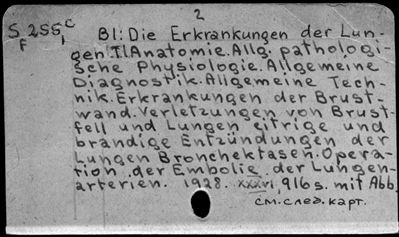 2
S 255 c
F 1
Bl: Die Erkrankungen der Lun-
gen.Tl Anatomie.Allg. pathologi-
sche Physiologie. Allgemeine
Diagnostik. Allgemeine Tech-
nik. Erkrankungen der Brust-
wand. Verletzungen von Brust-
fell und Lungen eitrige und
brandige Entzündungen der
Lungen Bronchektasen. Opera-
tion der Embolie der Lungen-
arterien. 1928. XXXVI, 916 s. mit Abb.
см. след. карт.